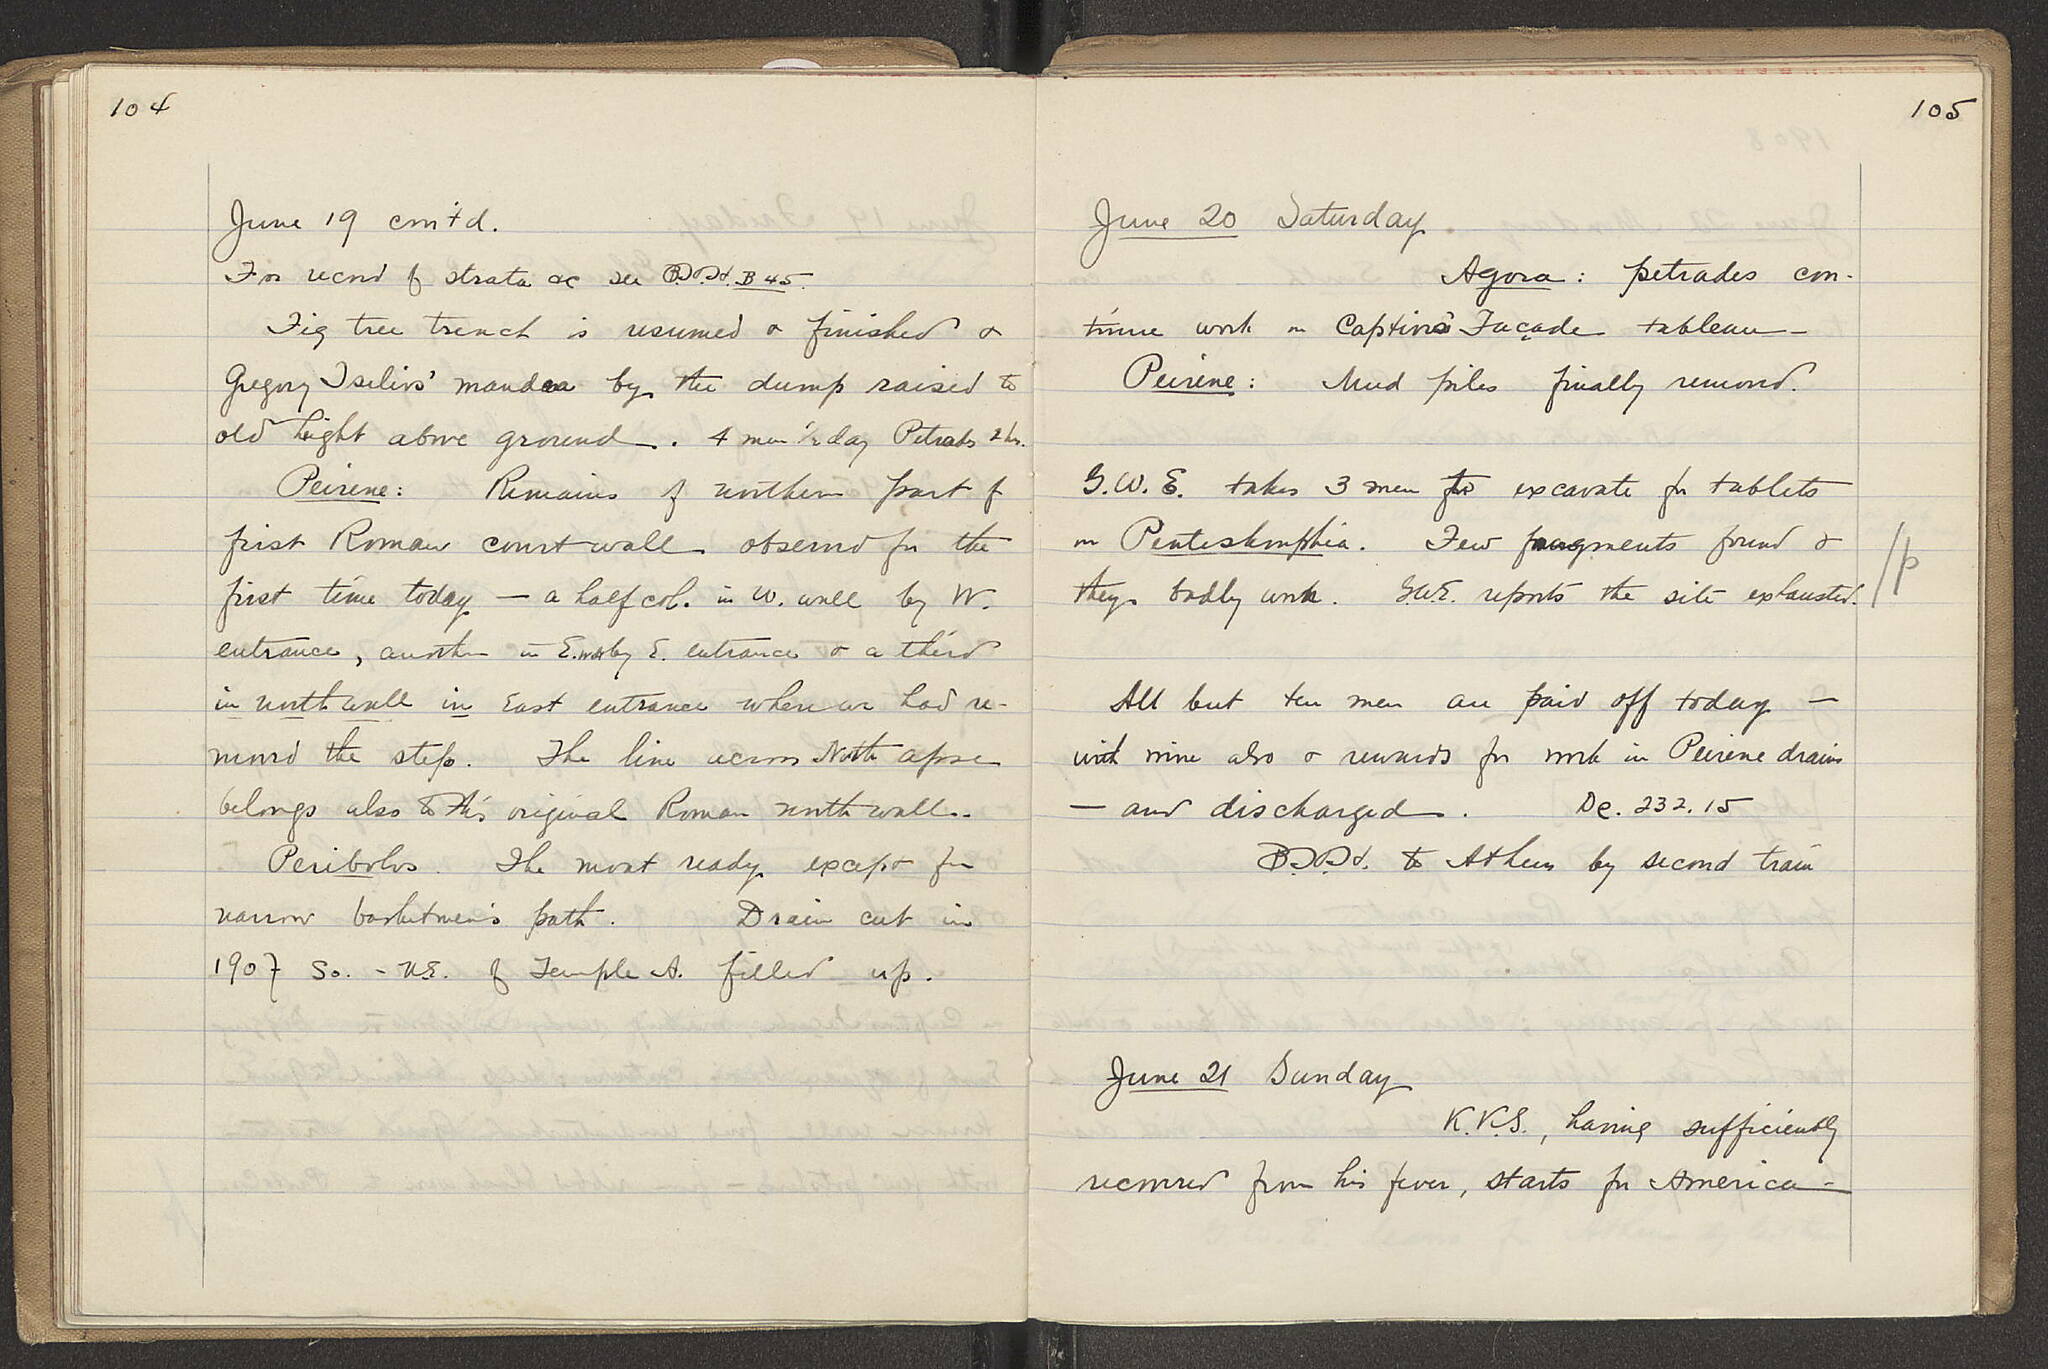 104
June 19 cont'd.
For record of strata &c see B.H.H. B 45.
Fig tree trench is resumed & finished &
Gregory Iselins' mandra by the dump raised to
old height above ground. 4 men ½ day Petrades 2 hrs.
Peirene: Remains of northern part of
first Roman court wall observed for the
first time today — a half col. in W. wall by W.
entrance, another in E. wall by E. entrance & a third
in north wall in East entrance where we had re-
moved the steps. The line across North apse
belongs also to this original Roman north wall.
Peribolos. The most ready except for
narrow basketmen's path. Drain cut in
1907 So. - NE. of Temple A. filled up.
105
June 20 Saturday.
Agora: petrades con-
tinue work on Captives' Façade tableau —
Peirene: Mud piles finally removed.
G.W.E. takes 3 men to excavate for tablets
on Penteskouphia. Few fragments found &
they badly worn. G.W.E. reports the site exhausted.
//p
All but ten men are paid off today —
with wine also & rewards for work in Peirene drains
— and discharged. De. 232.15
to Athens by second train
June 21 Sunday
K.K.S., having sufficiently
recovered from his fever, starts for America —